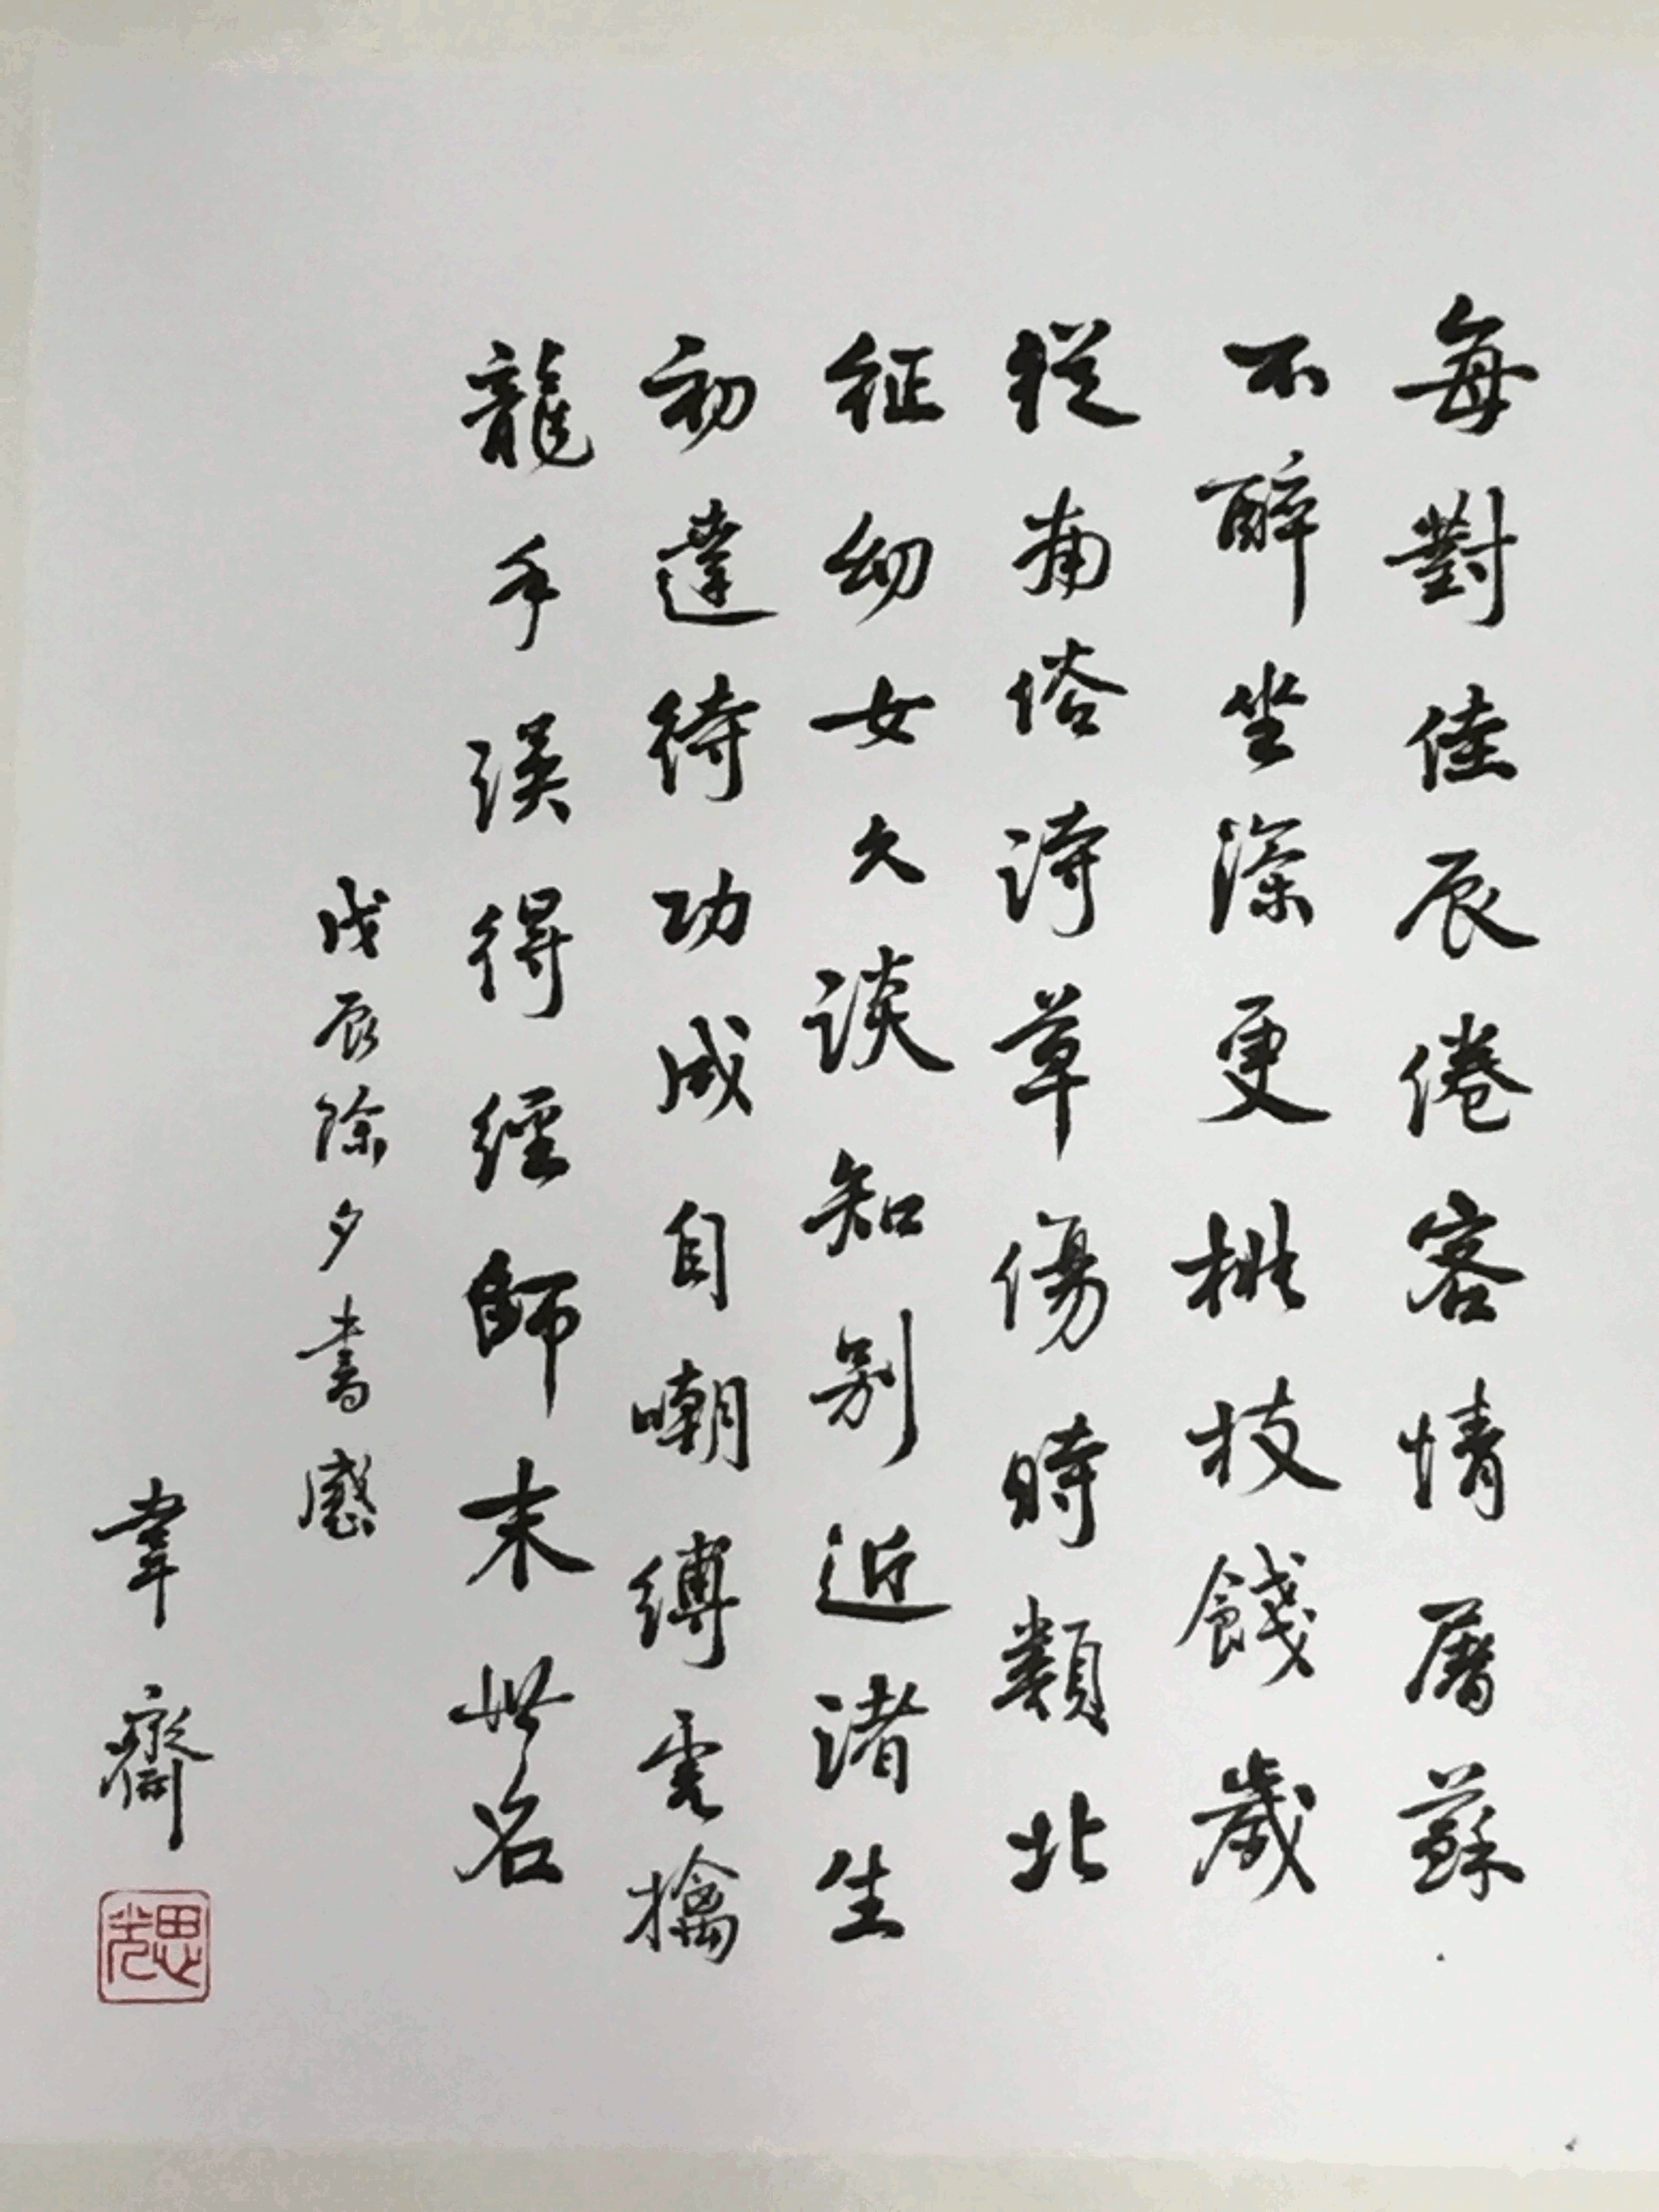 每對佳辰倦客情屠蘇
不醉坐深更桃枝餞歲
從南俗詩草傷時類北
征幼女久談知别近諸生
初達待功成自嘲縛虎擒
龍手誤得經師末世名
戊辰除夕書感
韋齋